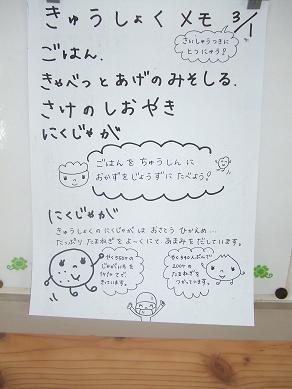 きゅうしょくメモ 3/1
さいしゅうつきに
とつにゅう!
ごはん.
きゃべっとあげのみそしる.
さけのしおやき
にくじゃが
ごはんをちゅうしんに
おかずをじょうずにたべよう!
にくじゃが
きゅうしょくのにくじゃがは おさとう ひかえめ…
たっぷり たまねぎを よーくにて あまみを だしています。
じゃがいもを
たまねぎを
つかっています。